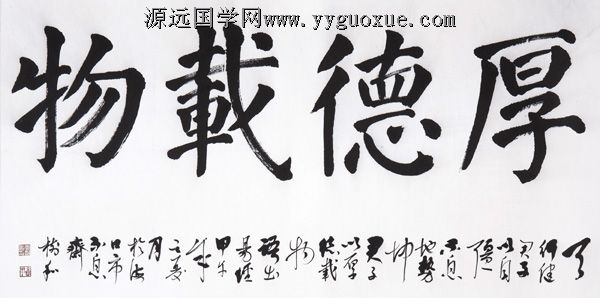 源远国学网www.yyguoxue.com
厚德載物
天
行健
君子
以自
彊
不息
地勢
坤
君子
以厚
德載
物
語出
易經
甲午
年
夏
月
於海
口市
不息
齋
樹和